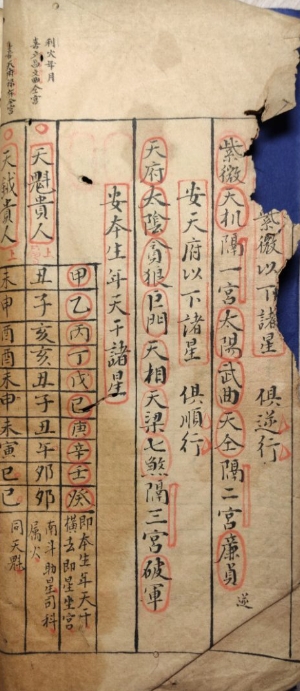 紫微以下諸星 俱逆行
紫微天机隔一宮太陽武曲天仝隔二宮廉貞 逆
安天府以下諸星 俱順行
天府太陰貪狼巨門天相天梁七煞隔三宮破軍
安本生年天干諸星
甲乙丙丁戊己庚辛壬癸 即本生年天干
橫去即星坐宮
天魁貴人 丑子亥亥丑子丑午卯卯 南斗助星司科
属火
天鉞貴人 未申酉酉未申未寅巳巳 同天魁